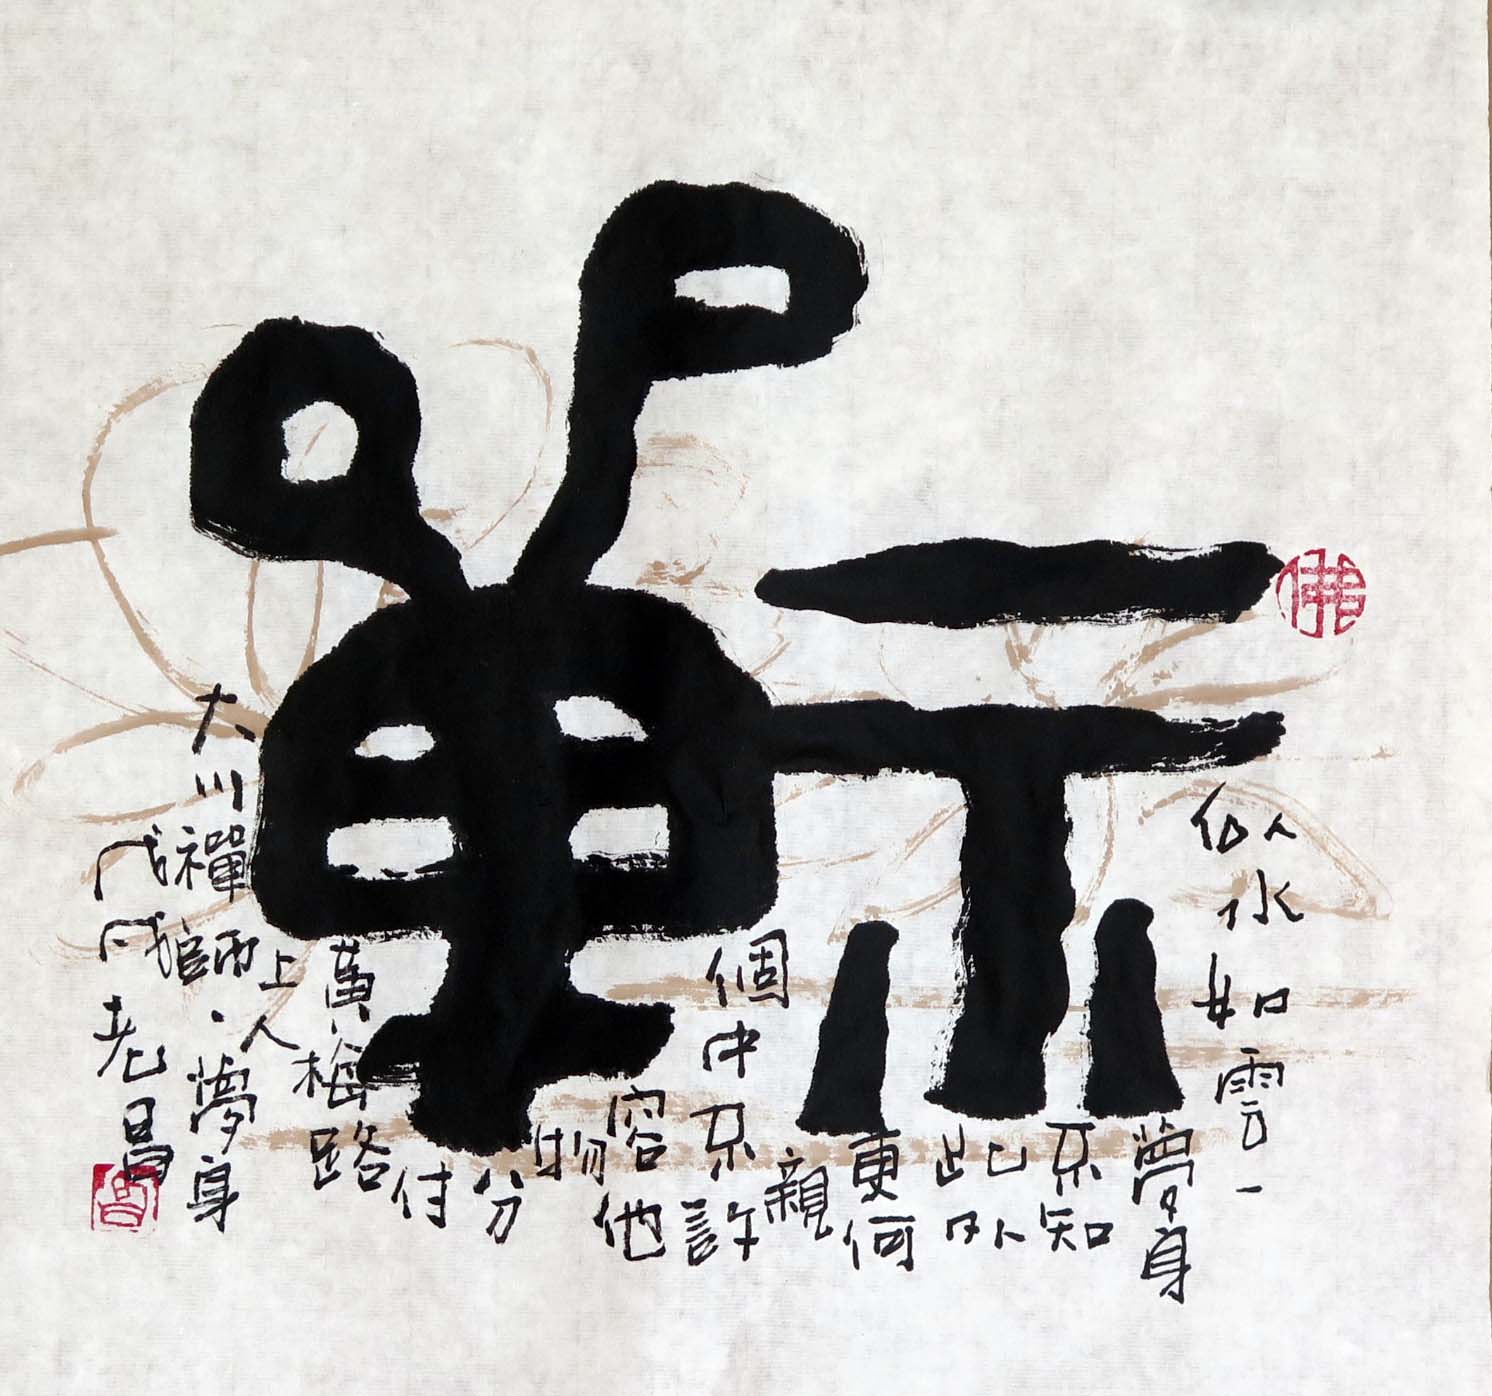 禪
佛
似水如雲一
夢身
不知
此外
更何
親
個中不許
容他
物
分
付
黃梅路
上人
大川禪師·夢身
戊戌老昌
昌